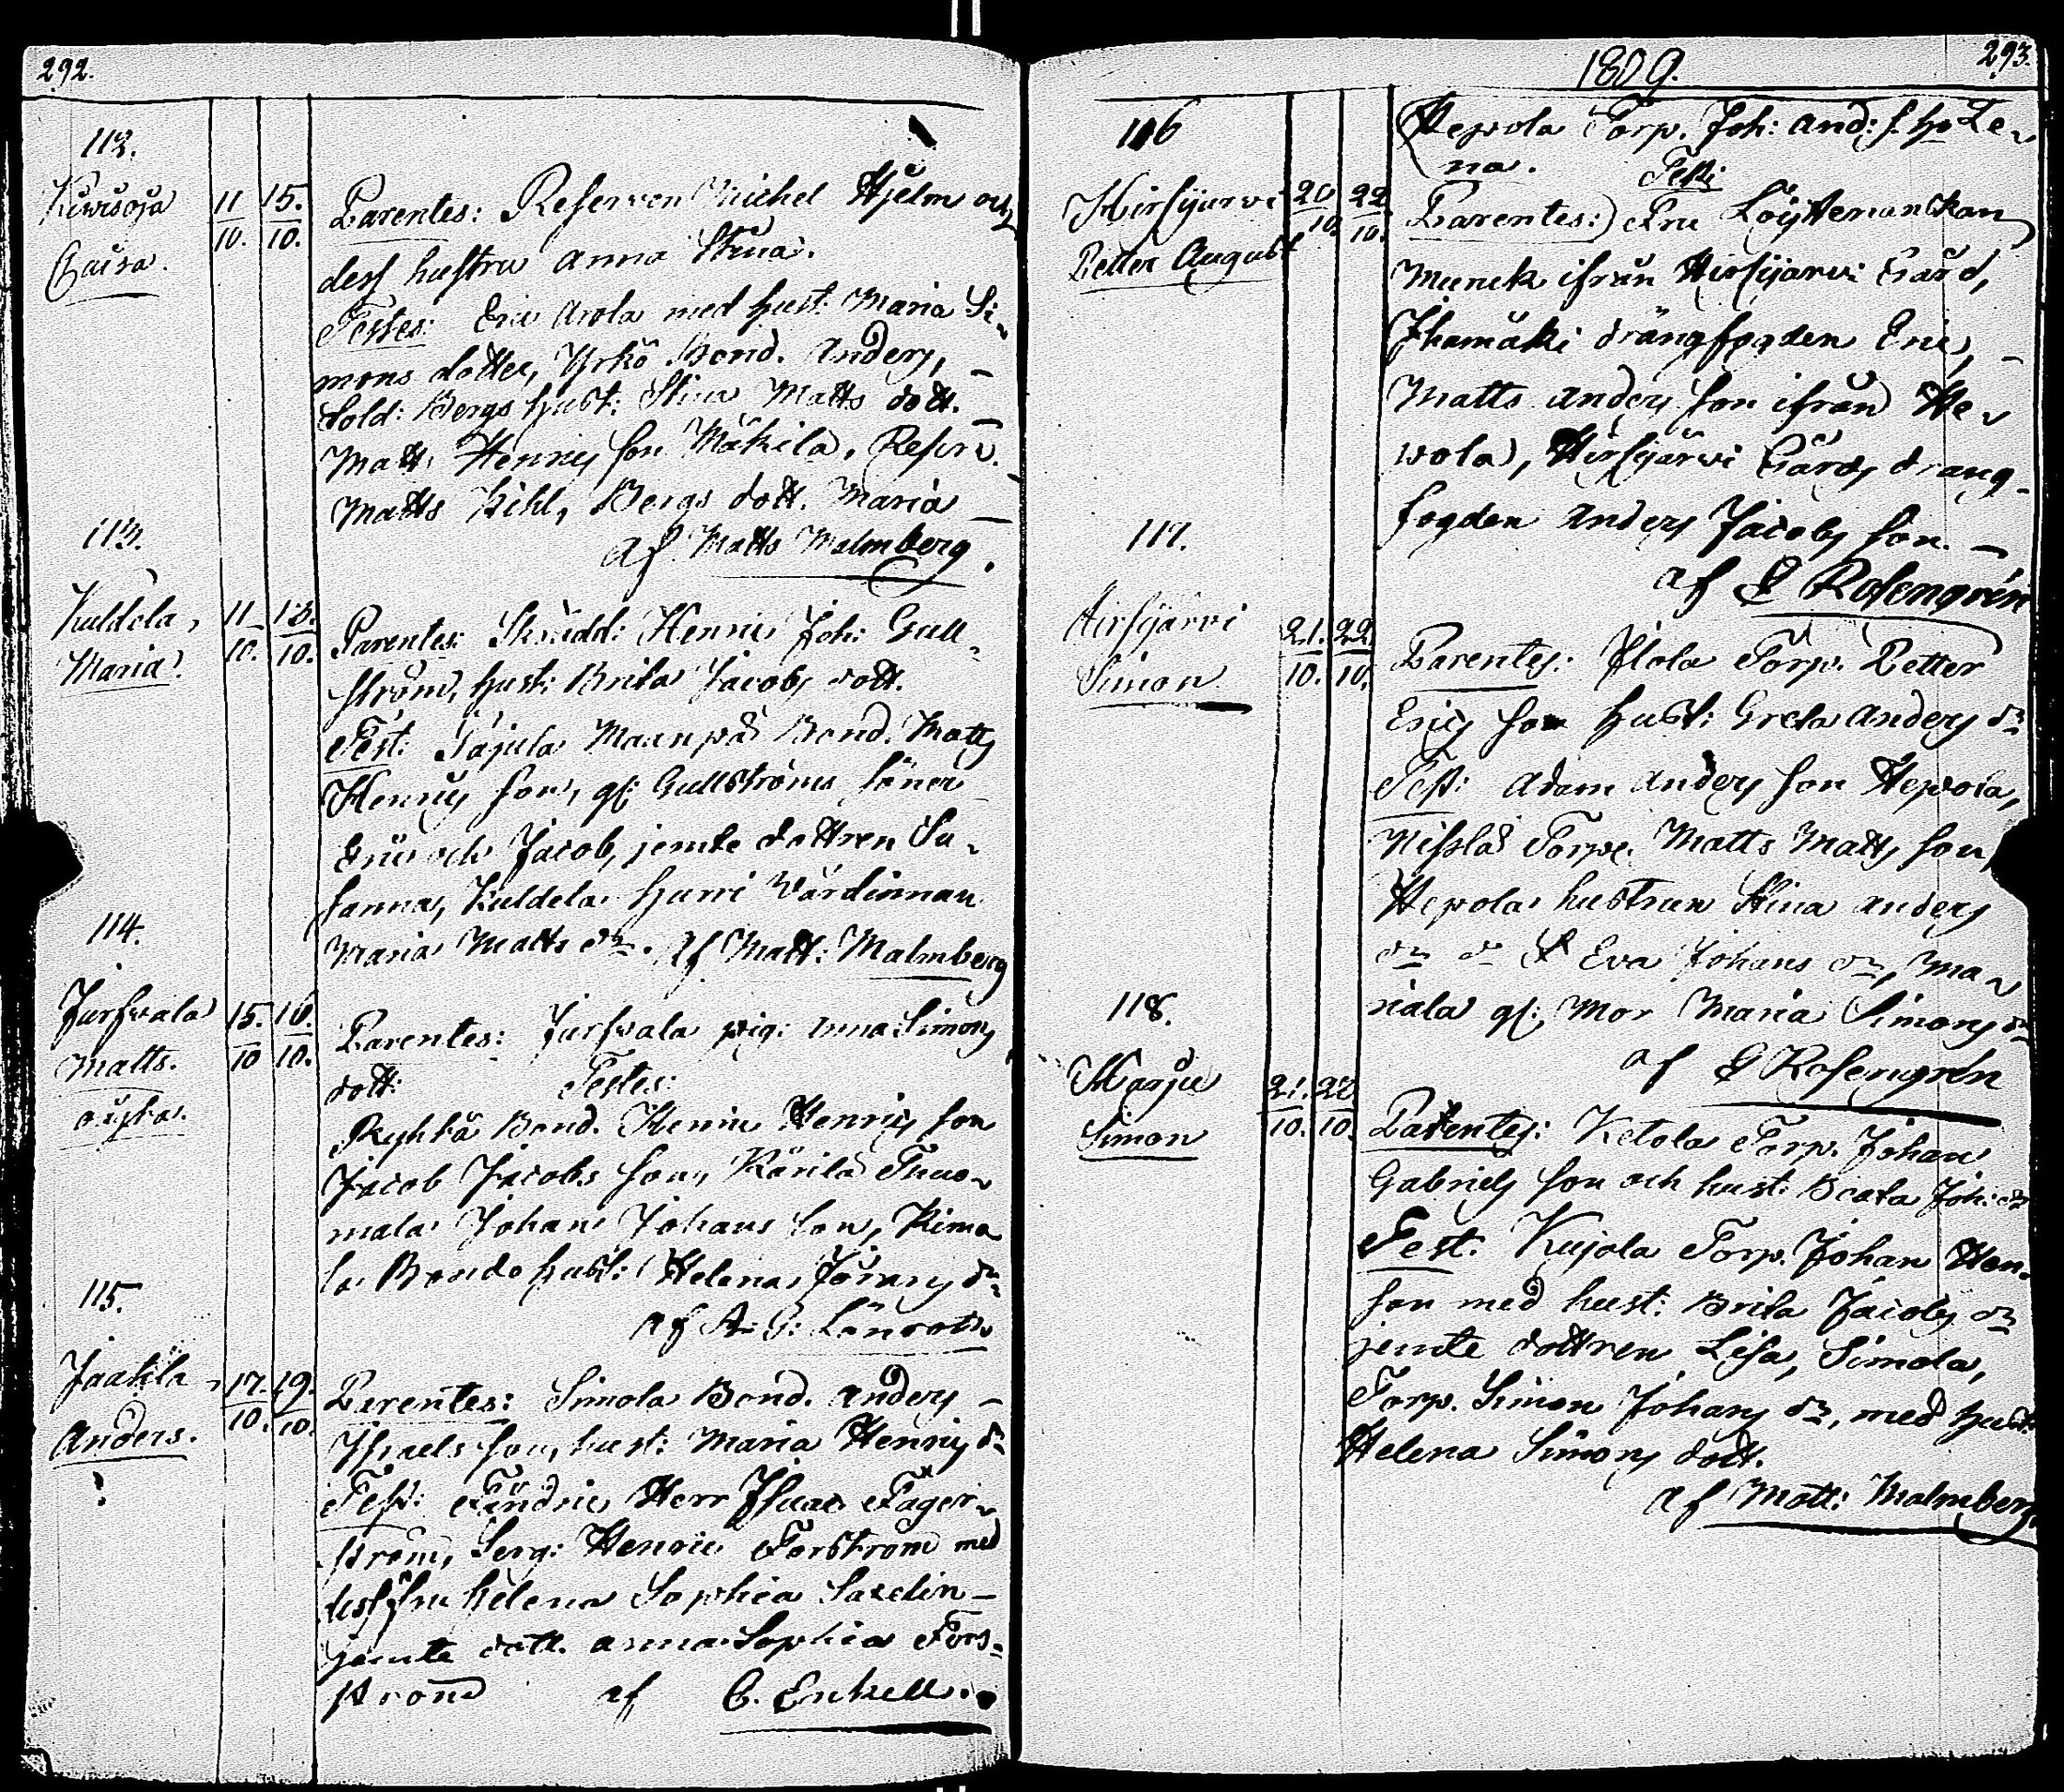 292.
112.
Kiwisoja
Caisa.
11/10. 15./10.
Parentes: Reserven Michel Hjelm och
dess hustru Anna Stina.
Testes: Eric Arola med hust: Maria Si-
mons dotter, Yrkö Bond. Anders,
Sold: Bergs hust: Stina Matts dott.
Matts Henrics son Mäkilä, Reserv.
Matts Kihl, Bergs dott. Maria
af Matts Malmberg.
113.
Kuldela,
Maria.
11/10. 13./10.
Parentes: Skrädd: Henric Joh: Gull-
ström, hust: Brita Jacobs dott.
Test: Tajula Maanpää Bond. Matts
Henrics son, gl: Gullströms söner
Eric och Jacob, jemte dottren Su-
sanna, Kuldela Hurri Värdinnan
Maria Matts dr. Af Matt: Malmberg
114.
Jursvala
Matts.
oägta.
15./10 16./10.
Parentes: Jursvala pig: Anna Simons
dott: Testes:
Ryhtä Bond. Henric Henrics son
Jacob Jacobs son, Kärilä Tuuo-
mala Johan Johans son, Kima
la Bonde hust: Helena Jörans dr
af A: G: Lönroth
115.
Jaakla,
Anders.
17./10. 19./10.
Parentes: Simola Bond. Anders
Israels son, hust: Maria Henrics dr
Test: Fändric Herr Isaac Fager-
ström, Serg: Henric Forström med
dess fru Helena Sophia Saxelin
jemte dott. Anna Sophia Fors-
ström af C. Enkell.
1809. 293.
116
Hirsijärvi
Petter August
20/10. 22/10.
Hepola Torp. Joh: And: s. h. Le-
na. Test:
Parentes:) Fru Löijtenanskan
Munck ifrån Hirsijärvi Gård,
Ihamäki drängfogden Eric,
Matts Anders son ifrån He-
pola, Hirsijärvi Gårds dräng-
fogden Anders Jacobs son.
af G Rosengrén
117.
Hirsijärvi
Simon
21./10. 22/10.
Parentes: Ilola Torp. Petter
Erics son hust: Greta Anders dr
Test: Adam Anders son Hepola,
Torpe. Matts Matts son,
Hepola hustrun Stina Anders
dr Eva Johans dr, Ma-
riala gl: Mor Maria Simons dr
af G Rosengrén
118.
Harju
Simon
21./10. 22/10.
Parentes: Ketola Torp. Johan
Gabriels son och hust: Beata Joh: dr
Test. Kujola Torp. Johan Hen-
son med hust: Brita Jacobs dr
jemte dottren Lisa, Simola,
Torp. Simon Johans dr, med hust:
Helena Simons dott.
af Matt: Malmberg.